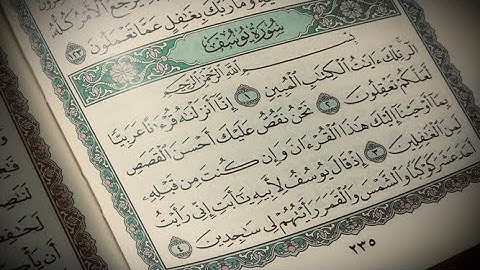 يُرْجَعُ ٱلْأَمْرُ كُلُّهُۥ
وَمَا رَبُّكَ بِغَٰفِلٍ عَمَّا تَعْمَلُونَ ١٢٣
سُورَةُ يُوسُفَ
بِسْمِ ٱللَّهِ ٱلرَّحْمَٰنِ ٱلرَّحِيمِ
الٓر تِلْكَ ءَايَٰتُ ٱلْكِتَٰبِ ٱلْمُبِينِ ١ إِنَّآ أَنزَلْنَٰهُ قُرْءَٰنًا عَرَبِيًّا
لَّعَلَّكُمْ تَعْقِلُونَ ٢ نَحْنُ نَقُصُّ عَلَيْكَ أَحْسَنَ ٱلْقَصَصِ
بِمَآ أَوْحَيْنَآ إِلَيْكَ هَٰذَا ٱلْقُرْءَانَ وَإِن كُنتَ مِن قَبْلِهِۦ
لَمِنَ ٱلْغَٰفِلِينَ ٣ إِذْ قَالَ يُوسُفُ لِأَبِيهِ يَٰٓأَبَتِ إِنِّي رَأَيْتُ
أَحَدَ عَشَرَ كَوْكَبًا وَٱلشَّمْسَ وَٱلْقَمَرَ رَأَيْتُهُمْ لِي سَٰجِدِينَ ٤
٢٣٥